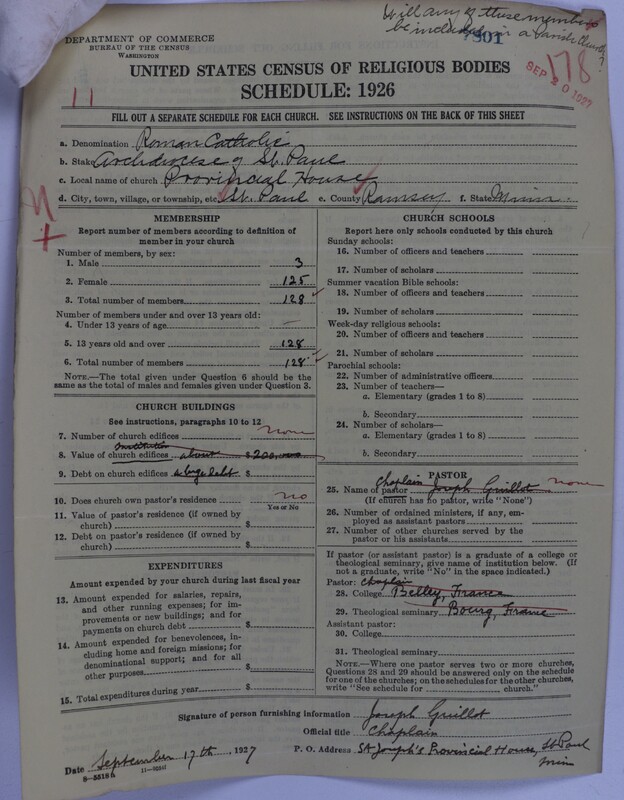 Will any of these members
be included in a Parish Church?
DEPARTMENT OF COMMERCE
BUREAU OF THE CENSUS
WASHINGTON
301
178
SEP 20 1927
UNITED STATES CENSUS OF RELIGIOUS BODIES
SCHEDULE: 1926
11
FILL OUT A SEPARATE SCHEDULE FOR EACH CHURCH. SEE INSTRUCTIONS ON THE BACK OF THIS SHEET
a. Denomination Roman Catholic
b. Stake Archdiocese of St. Paul
c. Local name of church Provincial House
d. City, town, village, or township, etc. St. Paul e. County Ramsey f. State Minn.
MEMBERSHIP
Report number of members according to definition of
member in your church
Number of members, by sex:
1. Male 3
2. Female 125
3. Total number of members 128
Number of members under and over 13 years old:
4. Under 13 years of age —
5. 13 years old and over 128
6. Total number of members 128
NOTE.—The total given under Question 6 should be the
same as the total of males and females given under Question 3.
CHURCH BUILDINGS
See instructions, paragraphs 10 to 12
7. Number of church edifices none
Institution
8. Value of church edifices about $ 200,000
9. Debt on church edifices a large debt $
10. Does church own pastor's residence no
Yes or No
11. Value of pastor's residence (if owned by
church) $
12. Debt on pastor's residence (if owned by
church) $
EXPENDITURES
Amount expended by church during last fiscal year
13. Amount expended for salaries, repairs,
and other running expenses; for im-
provements or new buildings; and for
payments on church debt $
14. Amount expended for benevolences, in-
cluding home and foreign missions; for
denominational support; and for all
other purposes $
15. Total expenditures during year $
CHURCH SCHOOLS
Report here only schools conducted by this church
Sunday schools:
16. Number of officers and teachers
17. Number of scholars
Summer vacation Bible schools:
18. Number of officers and teachers
19. Number of scholars
Week-day religious schools:
20. Number of officers and teachers
21. Number of scholars
Parochial schools:
22. Number of administrative officers
23. Number of teachers—
a. Elementary (grades 1 to 8)
b. Secondary
24. Number of scholars—
a. Elementary (grades 1 to 8)
b. Secondary
PASTOR
chaplain
25. Name of pastor Joseph Guillot none
(If church has no pastor, write "None")
26. Number of ordained ministers, if any, em-
ployed as assistant pastors
27. Number of other churches served by the
pastor or his assistants
If pastor (or assistant pastor) is a graduate of a college or
theological seminary, give name of institution below. (If
not a graduate, write "No" in the space indicated.)
Pastor: chaplain
28. College Belley, France
29. Theological seminary Bourg, France
Assistant pastor:
30. College
31. Theological seminary
NOTE.—Where one pastor serves two or more churches,
Questions 28 and 29 should be answered only on the schedule
for one of the churches; on the schedules for the other churches,
write "See schedule for church."
Signature of person furnishing information Joseph Guillot
Official title Chaplain
Date September 17th, 1927 P. O. Address St Joseph's Provincial House, St Paul
Minn
8-5518 a